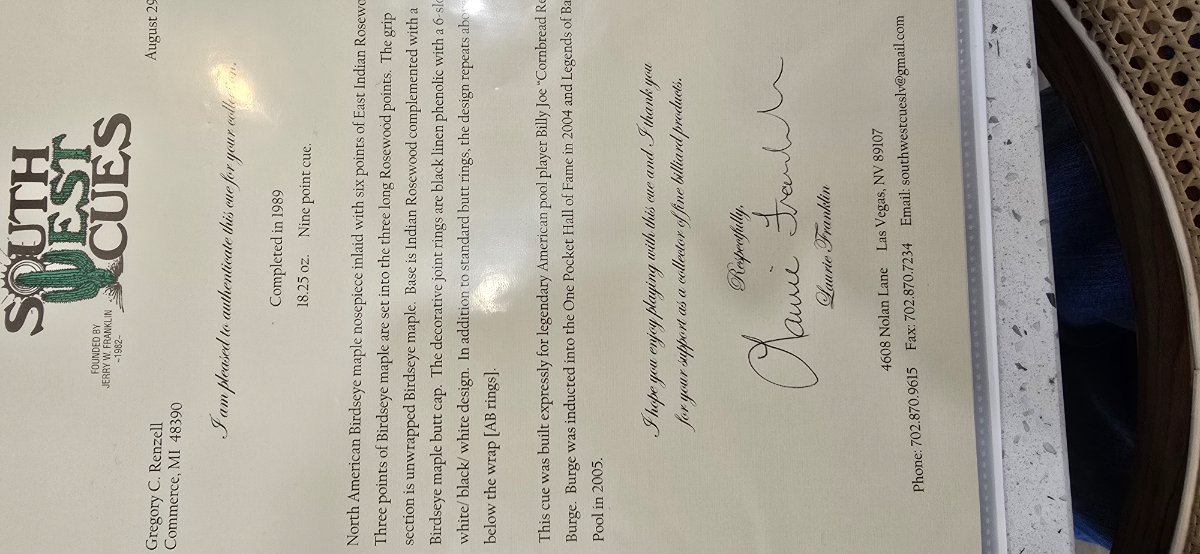 SOUTH
WEST
CUES
FOUNDED BY
JERRY W. FRANKLIN
~1982~
August 29
Gregory C. Renzell
Commerce, MI 48390
I am pleased to authenticate this cue for your collection.
Completed in 1989
18.25 oz. Nine point cue.
North American Birdseye maple nosepiece inlaid with six points of East Indian Rosewo
Three points of Birdseye maple are set into the three long Rosewood points. The grip
section is unwrapped Birdseye maple. Base is Indian Rosewood complemented with a
Birdseye maple butt cap. The decorative joint rings are black linen phenolic with a 6-slo
white/ black/ white design. In addition to standard butt rings, the design repeats abo
below the wrap [AB rings].
This cue was built expressly for legendary American pool player Billy Joe "Cornbread Re
Burge. Burge was inducted into the One Pocket Hall of Fame in 2004 and Legends of Ba
Pool in 2005.
I hope you enjoy playing with this cue and I thank you
for your support as a collector of fine billiard products.
Respectfully,
Laurie Franklin
Laurie Franklin
4608 Nolan Lane Las Vegas, NV 89107
Phone: 702.870.9615 Fax: 702.870.7234 Email: southwestcueslv@gmail.com